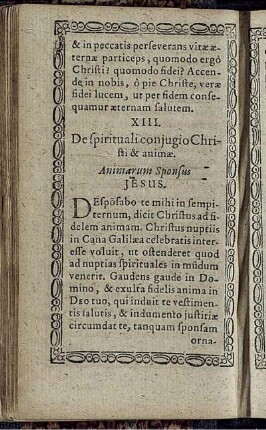 & in peccatis perseverans vitæ æ-
ternæ particeps, quomodo ergò
Christi? quomodo fidei? Accen-
de in nobis, ô pie Christe, veræ
fidei lucem, ut per fidem conse-
quamur æternam salutem.
XIII.
De spirituali conjugio Chri-
sti & animæ.
Animarum Sponsus
JESUS.
DEspõsabo te mihi in sempi-
ternum, dicit Christus ad fi-
delem animam. Christus nuptiis
in Cana Galilæa celebratis inter-
esse voluit, ut ostenderet quod
ad nuptias spirituales in mũdum
venerit. Gaudens gaude in Do-
mino, & exulta fidelis anima in
DEO tuo, qui induit te vestimen-
tis salutis, & indumento justitiæ
circumdat te, tanquam sponsam
orna-